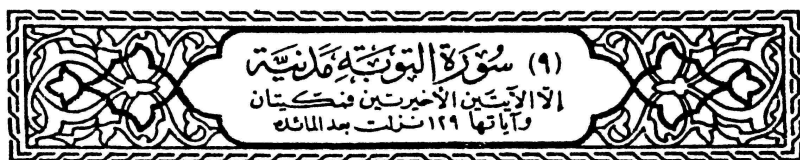 (٩) سُورَةُ التَّوْبَةِ مَدَنِيَّة
إلا الآيتين الأخيرتين فمكيتان
وآياتها ١٢٩ نزلت بعد المائدة